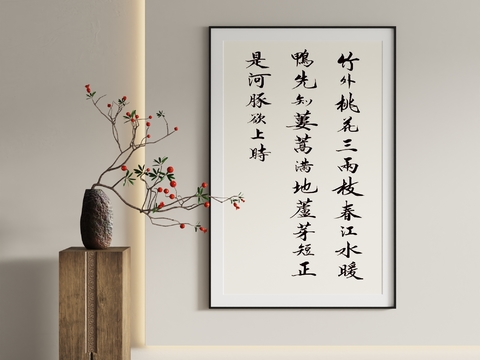 竹外桃花三兩枝春江水暖
鴨先知蔞蒿滿地蘆芽短正
是河豚欲上時